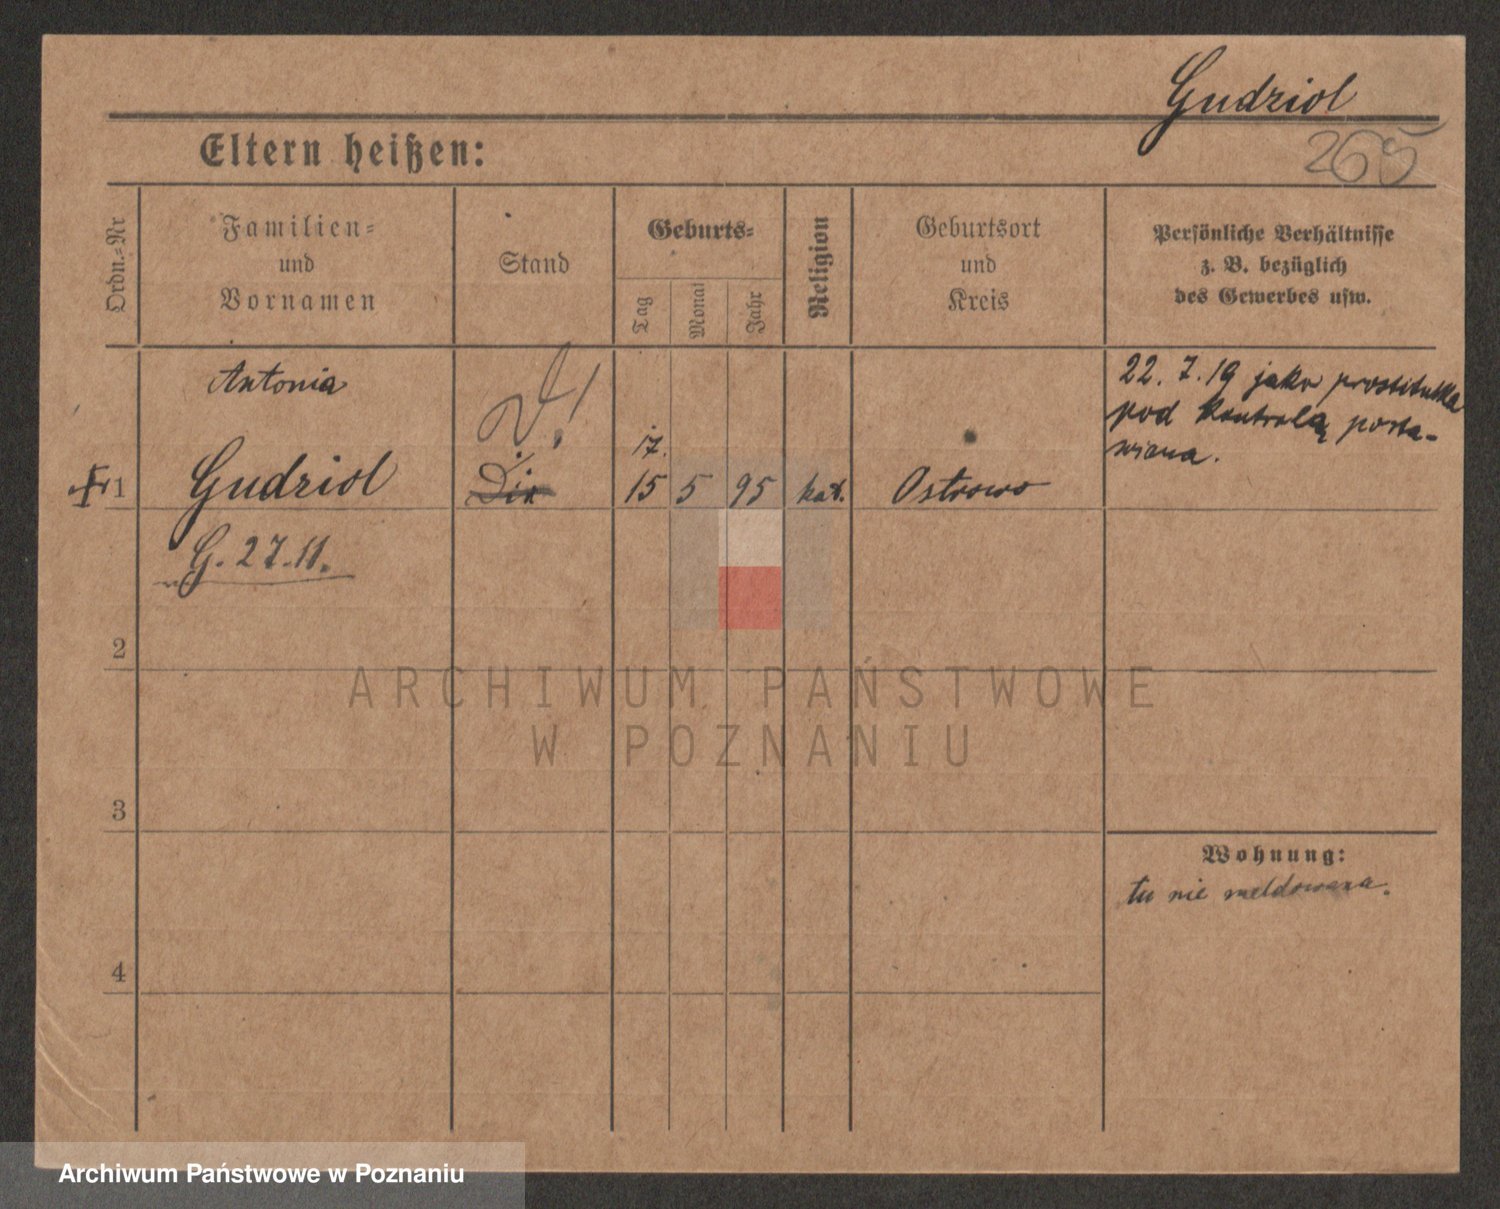 Gudziol
265
Eltern heißen:
Ordn.=Nr
Familien=
und
Vornamen
Stand
Geburts=
Tag
Monat
Jahr
Religion
Geburtsort
und
Kreis
Persönliche Verhältnisse
z. B. bezüglich
des Gewerbes usw.
Antonia
22. 7. 19 jako prostitutka
pod kontrolą posta-
wiona.
17.
1 Gudziol 15 5 95 kat. Ostrowo
G. 27.11.
2
ARCHIWUM PAŃSTWOWE
W POZNANIU
3
Wohnung:
tu nie meldowana.
4
Archiwum Państwowe w Poznaniu